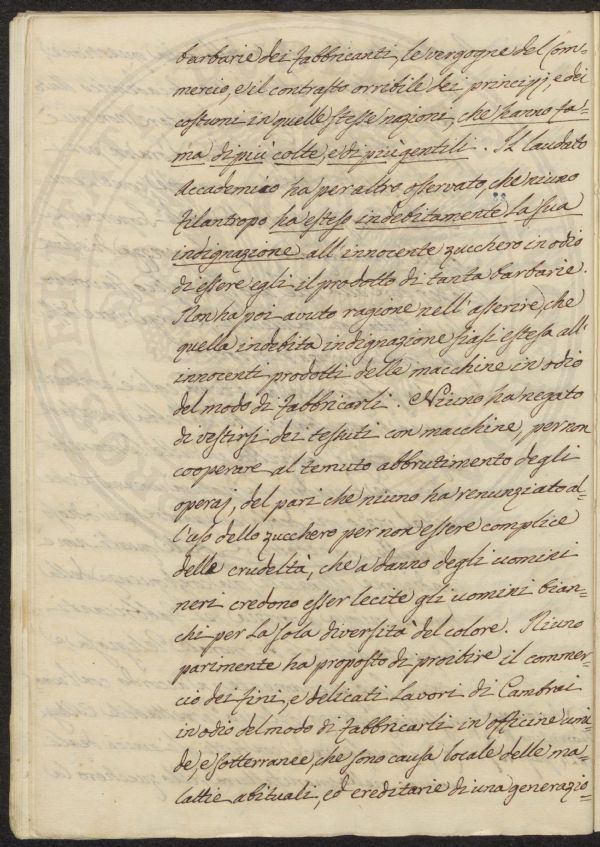 barbarie dei fabbricanti, le vergogne del Com-
mercio, e il contrasto orribile dei principj, e dei
costumi in quelle stesse nazioni, che hanno fa-
ma di più colte, e di più gentili. Il laudato
Accademico ha per altro osservato, che niuno
filantropo ha esteso indebitamente la sua
indignazione all'innocente zucchero in odio
di essere egli il prodotto di tanta barbarie.
Non ha poi avuto ragione nell'asserire, che
quella indebita indignazione siasi estesa all'
innocenti prodotti delle macchine in odio
del modo di fabbricarli. Niuno ha negato
di vestirsi dei tessuti con macchine, per non
cooperare al temuto abbrutimento degli
operaj, del pari che niuno ha renunziato al-
l'uso dello zucchero per non essere complice
delle crudeltà, che a danno degli uomini
neri credono esser lecite gli uomini bian-
chi per la sola diversità del colore. Niuno
parimente ha proposto di proibire il commer-
cio dei fini, e delicati lavori di Cambrai
in odio del modo di fabbricarli in officine umi-
de, e sotterranee, che sono causa locale delle ma-
lattie abituali, ed ereditarie di una generazio-